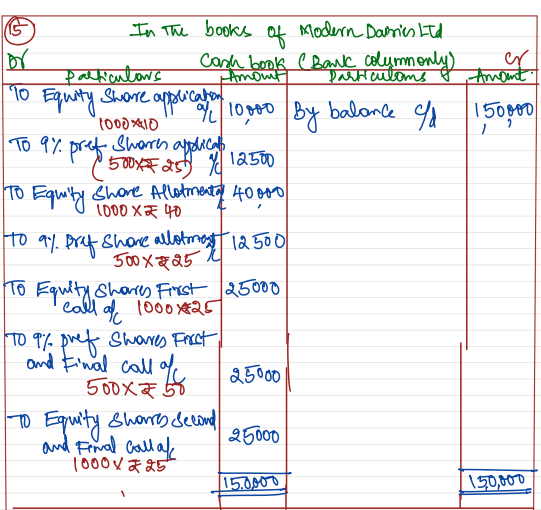 15
In The books of Modern Dairies Ltd
Dr Cash book (Bank column only) Cr
Particulars Amount Particulars Amount
To Equity Share application a/c 10,000 By balance c/d 150,000
1000×10
To 9% pref Shares applicat a/c 12500
(500×₹25)
To Equity Share Allotment a/c 40,000
1000×₹40
To 9% Pref Share allotment a/c 12500
500×₹25
To Equity Shares First 25000
Call a/c 1000×₹25
To 9% pref Shares First
and Final call a/c 25000
500×₹50
To Equity Shares Second
and Final call a/c 25000
1000×₹25
150,000 150,000